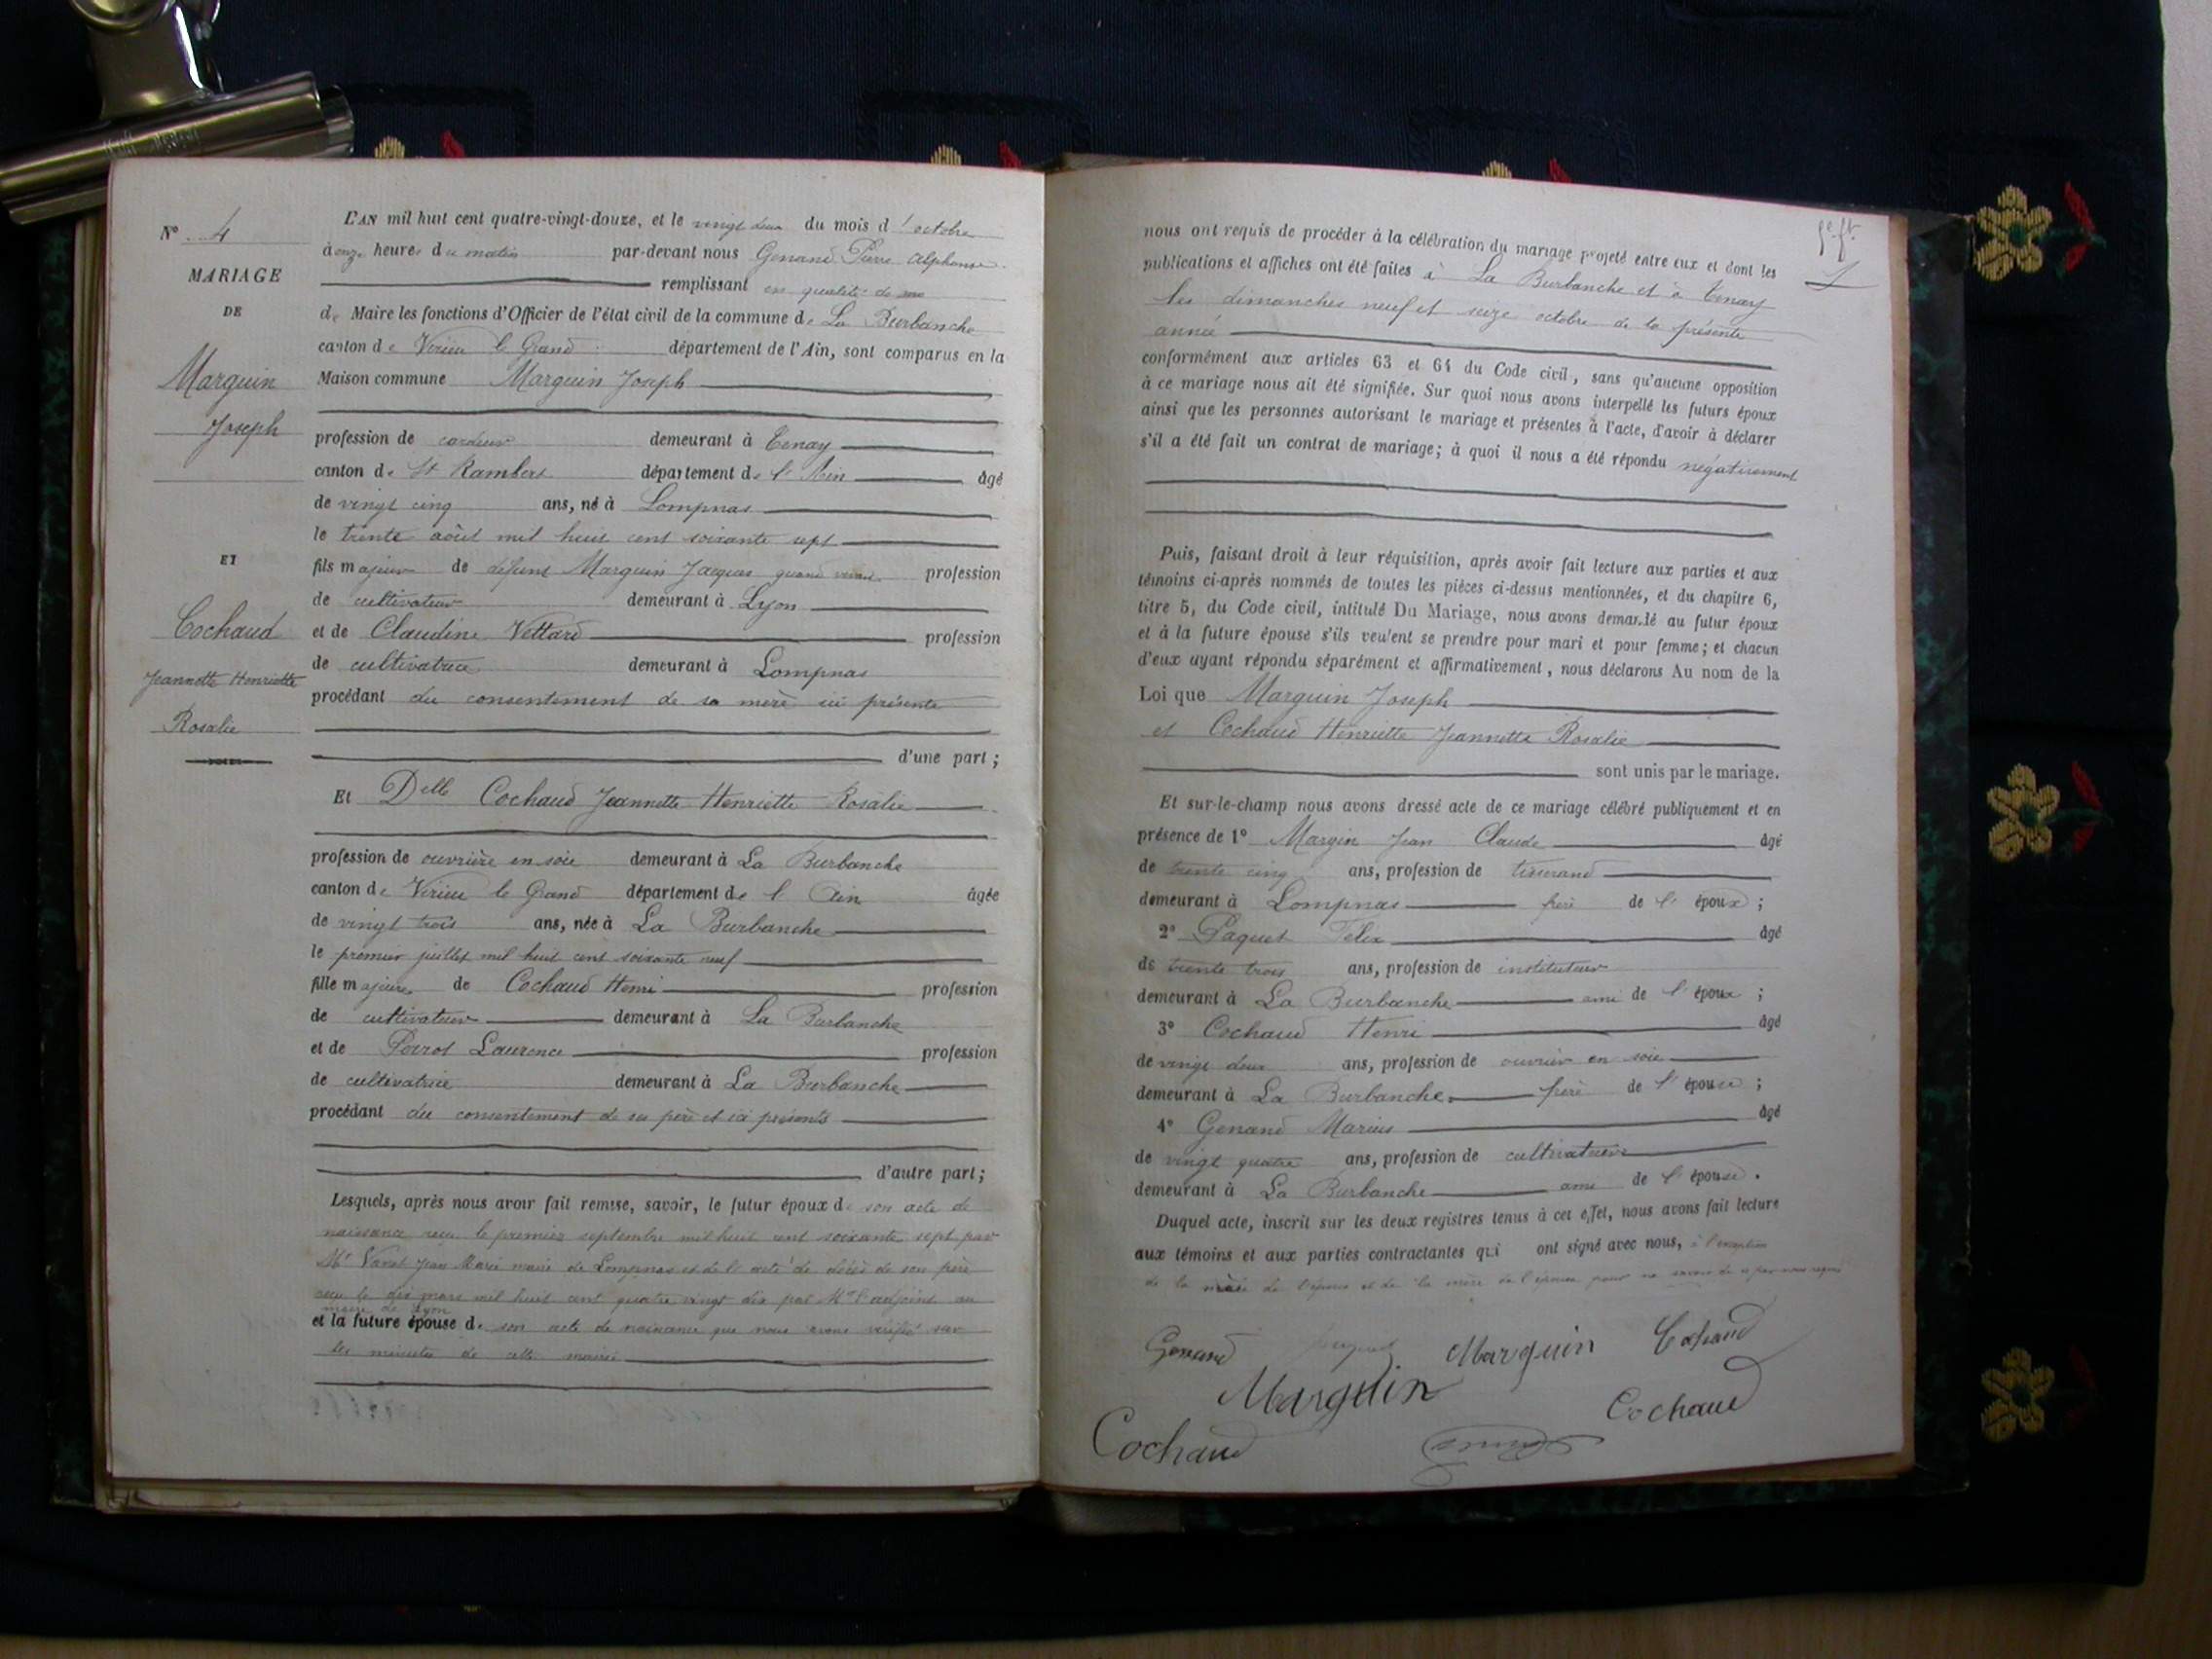 N° 4
MARIAGE
DE
Marguin
Joseph
ET
Cochaud
Jeannette Henriette
Rosalie
L'AN mil huit cent quatre-vingt-douze, et le vingt deux du mois d'octobre
à onze heures du matin par-devant nous Genand Pierre Alphonse
remplissant en qualité de
de Maire les fonctions d'Officier de l'état civil de la commune de La Burbanche
canton de Virieu le Grand département de l'Ain, sont comparus en la
Maison commune Marguin Joseph
profession de cardeur demeurant à Tenay
canton de St Rambert département de l'Ain âgé
de vingt cinq ans, né à Lompnas
le trente août mil huit cent soixante sept
fils majeur de défunt Marguin Jacques quand vivait profession
de cultivateur demeurant à Lyon
et de Claudine Vettard profession
de cultivatrice demeurant à Lompnas
procédant du consentement de sa mère ici présente
d'une part ;
Et Delle Cochaud Jeannette Henriette Rosalie
profession de ouvrière en soie demeurant à La Burbanche
canton de Virieu le Grand département de l'Ain âgée
de vingt trois ans, née à La Burbanche
le premier juillet mil huit cent soixante neuf
fille majeure de Cochaud Henri profession
de cultivateur demeurant à La Burbanche
et de Perrot Laurence profession
de cultivatrice demeurant à La Burbanche
procédant du consentement de ses père et ici présents
d'autre part ;
Lesquels, après nous avoir fait remise, savoir, le futur époux de son acte de
naissance reçu le premier septembre mil huit cent soixante sept par
Mr Jean Marie maire de Lompnas et de l'acte de décès de son père
reçu le dix mars mil huit cent quatre vingt dix par Mr l'adjoint au
maire de Lyon
et la future épouse de son acte de naissance que nous avons vérifié sur
les minutes de cette mairie
nous ont requis de procéder à la célébration du mariage projeté entre eux et dont les
publications et affiches ont été faites à La Burbanche et à Tenay
les dimanches neuf et seize octobre de la présente
année
conformément aux articles 63 et 64 du Code civil, sans qu'aucune opposition
à ce mariage nous ait été signifiée. Sur quoi nous avons interpellé les futurs époux
ainsi que les personnes autorisant le mariage et présentes à l'acte, d'avoir à déclarer
s'il a été fait un contrat de mariage ; à quoi il nous a été répondu négativement
Puis, faisant droit à leur réquisition, après avoir fait lecture aux parties et aux
témoins ci-après nommés de toutes les pièces ci-dessus mentionnées, et du chapitre 6,
titre 5, du Code civil, intitulé Du Mariage, nous avons demandé au futur époux
et à la future épouse s'ils veulent se prendre pour mari et pour femme ; et chacun
d'eux ayant répondu séparément et affirmativement, nous déclarons Au nom de la
Loi que Marguin Joseph
et Cochaud Henriette Jeannette Rosalie
sont unis par le mariage.
Et sur-le-champ nous avons dressé acte de ce mariage célébré publiquement et en
présence de 1° Margin Jean Claude âgé
de trente cinq ans, profession de tisserand
demeurant à Lompnas frère de l'époux ;
2° Paquet Felix âgé
de trente trois ans, profession de instituteur
demeurant à La Burbanche ami de l'époux ;
3° Cochaud Henri âgé
de vingt deux ans, profession de ouvrier en soie
demeurant à La Burbanche frère de l'épouse ;
4° Genand Marius âgé
de vingt quatre ans, profession de cultivateur
demeurant à La Burbanche ami de l'épouse.
Duquel acte, inscrit sur les deux registres tenus à cet effet, nous avons fait lecture
aux témoins et aux parties contractantes qui ont signé avec nous, à l'exception
de la mère de l'époux et de la mère de l'épouse pour ne savoir de ce par nous requis
Genand Marguin Cochaud
Marguin Cochaud
Cochaud